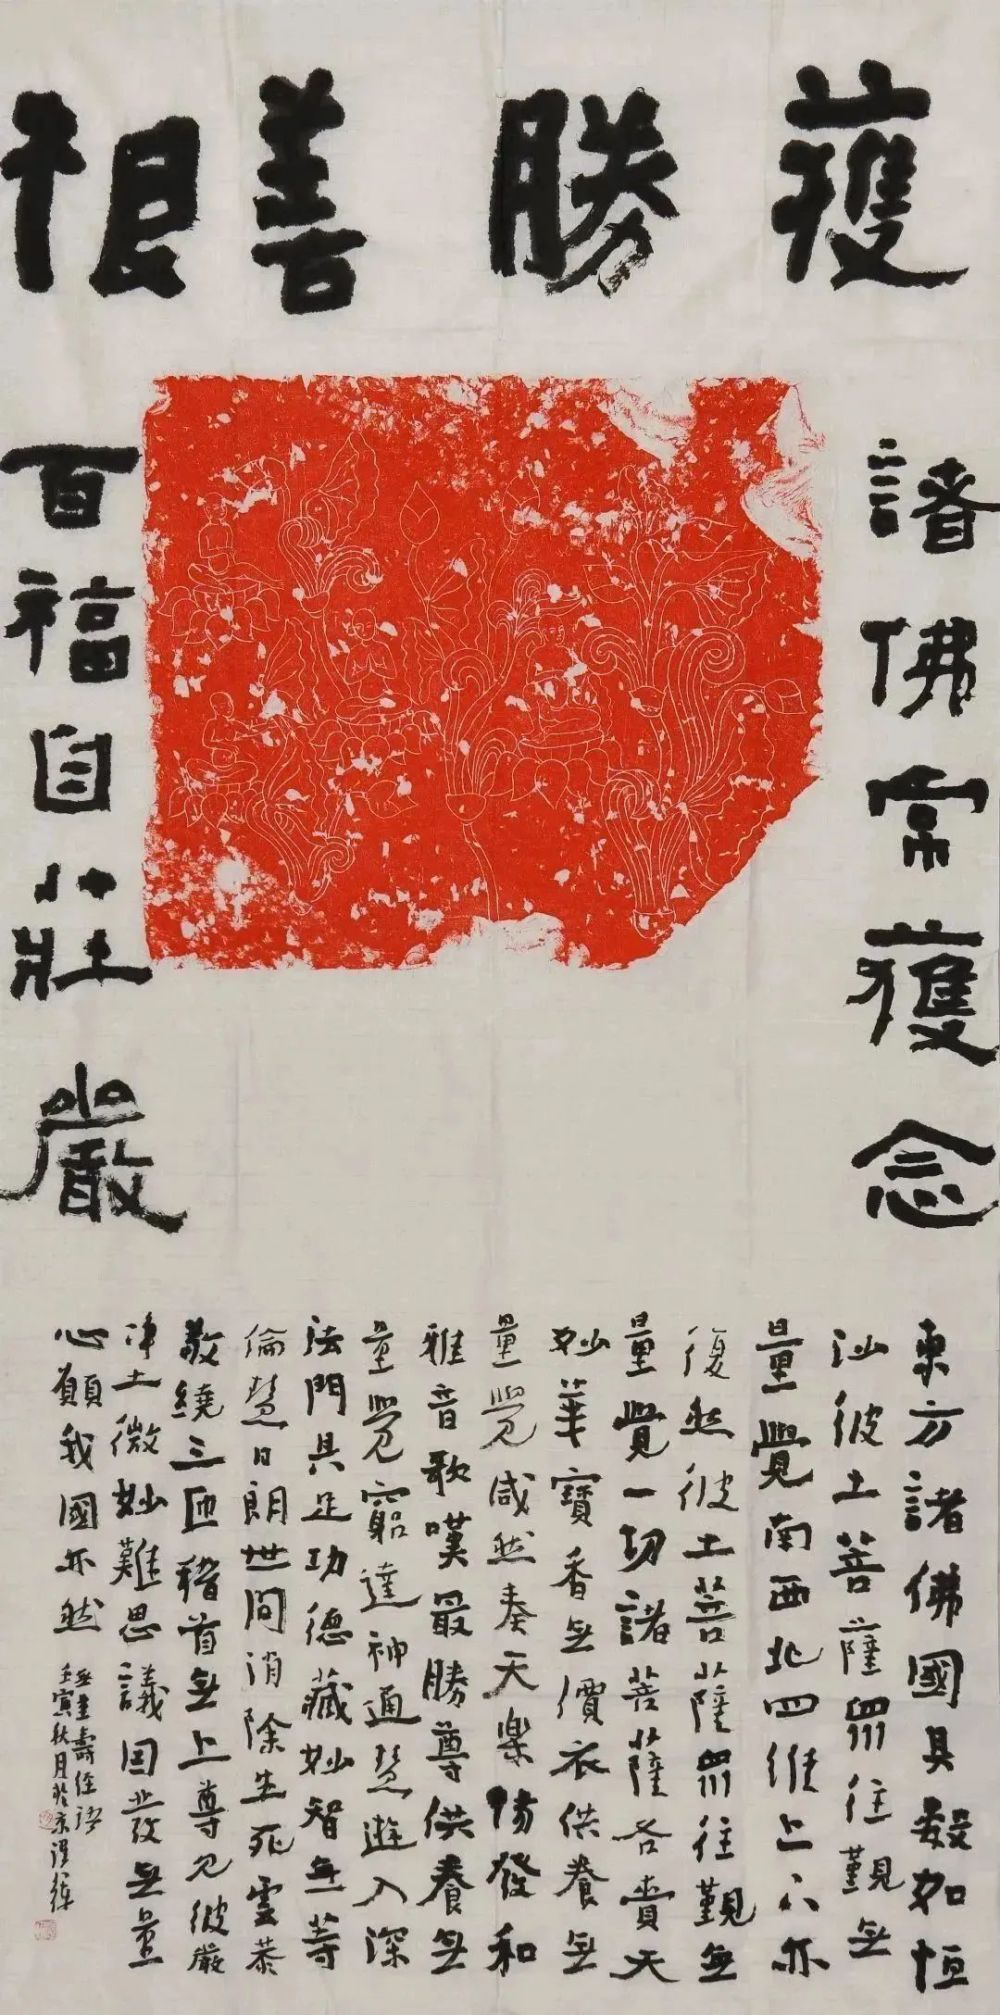 獲勝善根
諸佛常獲念
百福自莊嚴
東方諸佛國其數如恒
沙彼土菩薩眾往覲無
量覺南西北四維上下亦
復然彼土菩薩眾往覲無
量覺一切諸菩薩各賫天
妙華寶香無價衣供養無
量覺咸然奏天樂暢發和
雅音歌嘆最勝尊供養無
量覺窮達神通慧遊入深
法門具足功德藏妙智無等
倫慧日朗世間消除生死雲恭
敬繞三匝稽首無上尊見彼嚴
淨土微妙難思議因發無量
心願我國亦然
無量壽經語
壬寅秋月於京